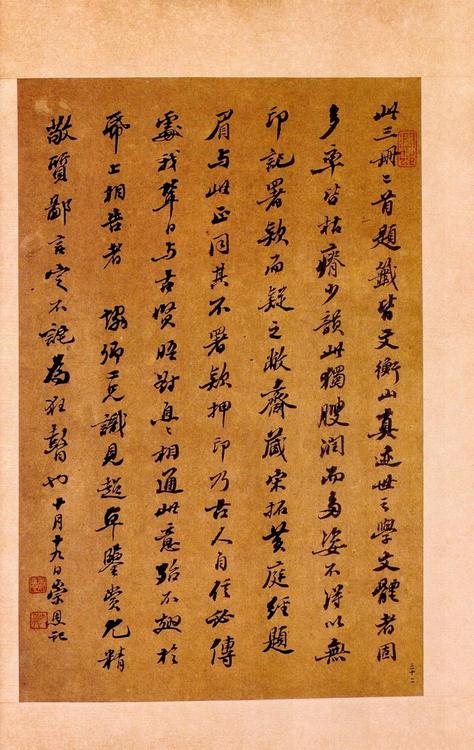 此三冊〻首題籤皆文衡山真迹世之學文體者固
多率皆枯瘠少韻此獨腴潤而多姿不得以無
印記署款而疑之敝齋藏宋拓黃庭經題
眉与此正同其不署款押印乃古人自信必傳
處我輩日与古賢晤對息〻相通此意殆不翅於
帋上相告者 協卿二兄識見超卓鑒賞尤精
敬質鄙言定不詫為狂瞽也十月十九日崇恩記
三十二